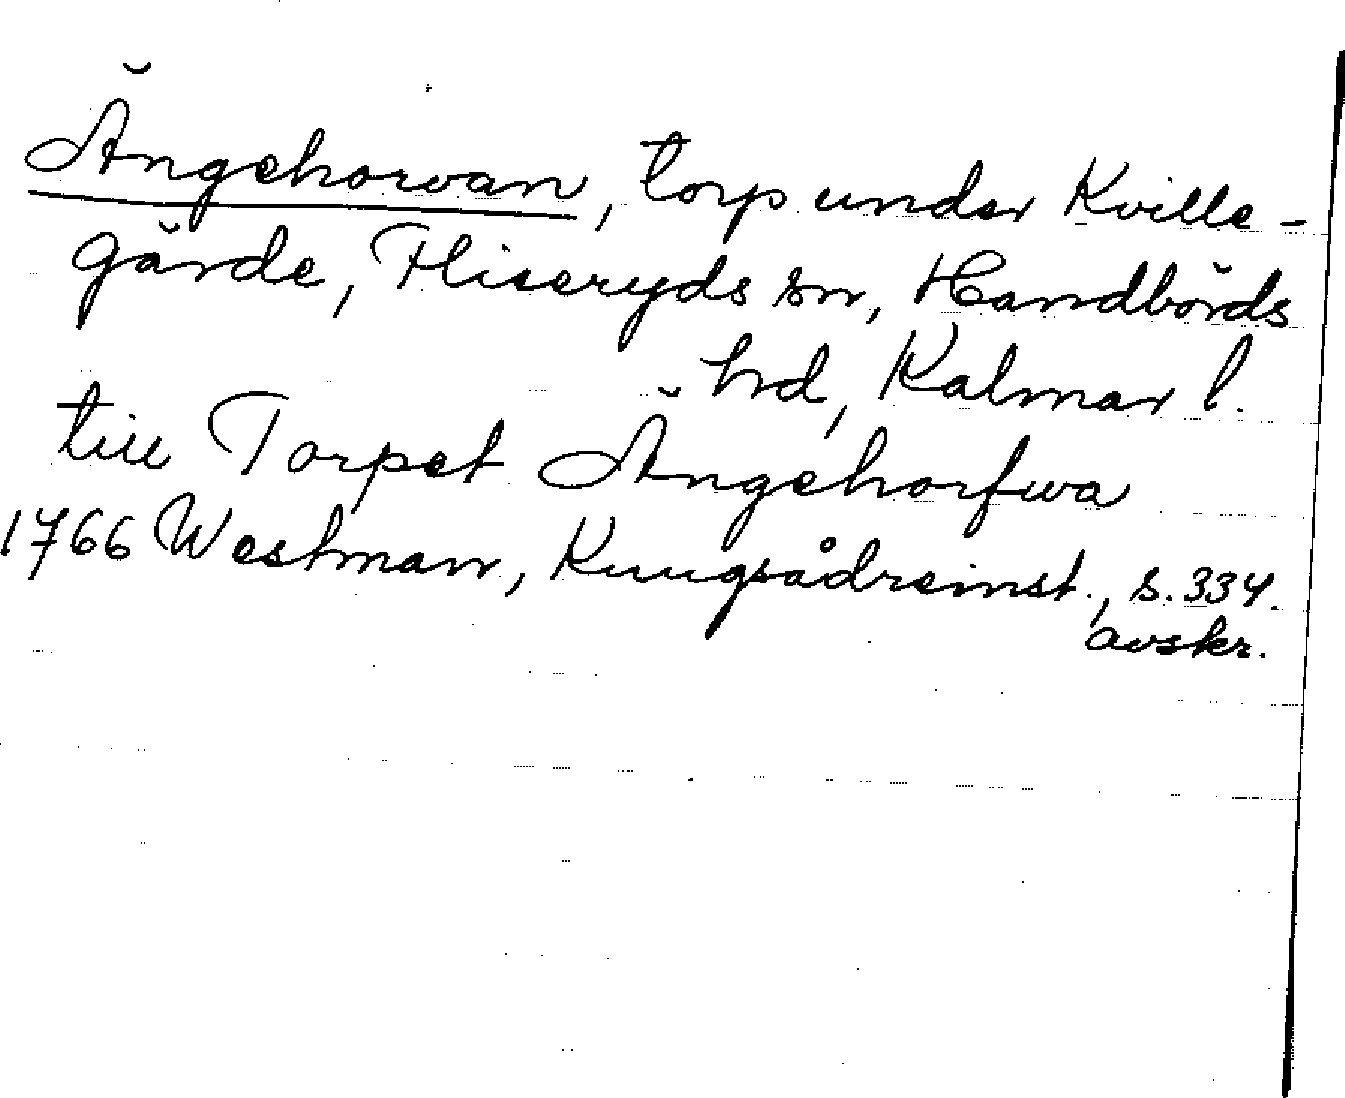 Ängehorvan, torp under Kville-
gärde, Fliseryds sn, Handbörds
hrd, Kalmar l.
till Torpet Ängehorfwa
1766 Westman, Kungsådreinst., s. 334.
avskr.